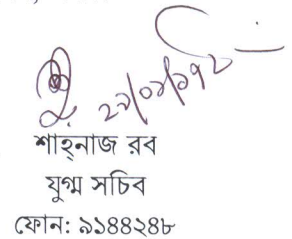 শাহ্‌নাজ রব
যুগ্ম সচিব
ফোন: ৯১৪৪২৪৮